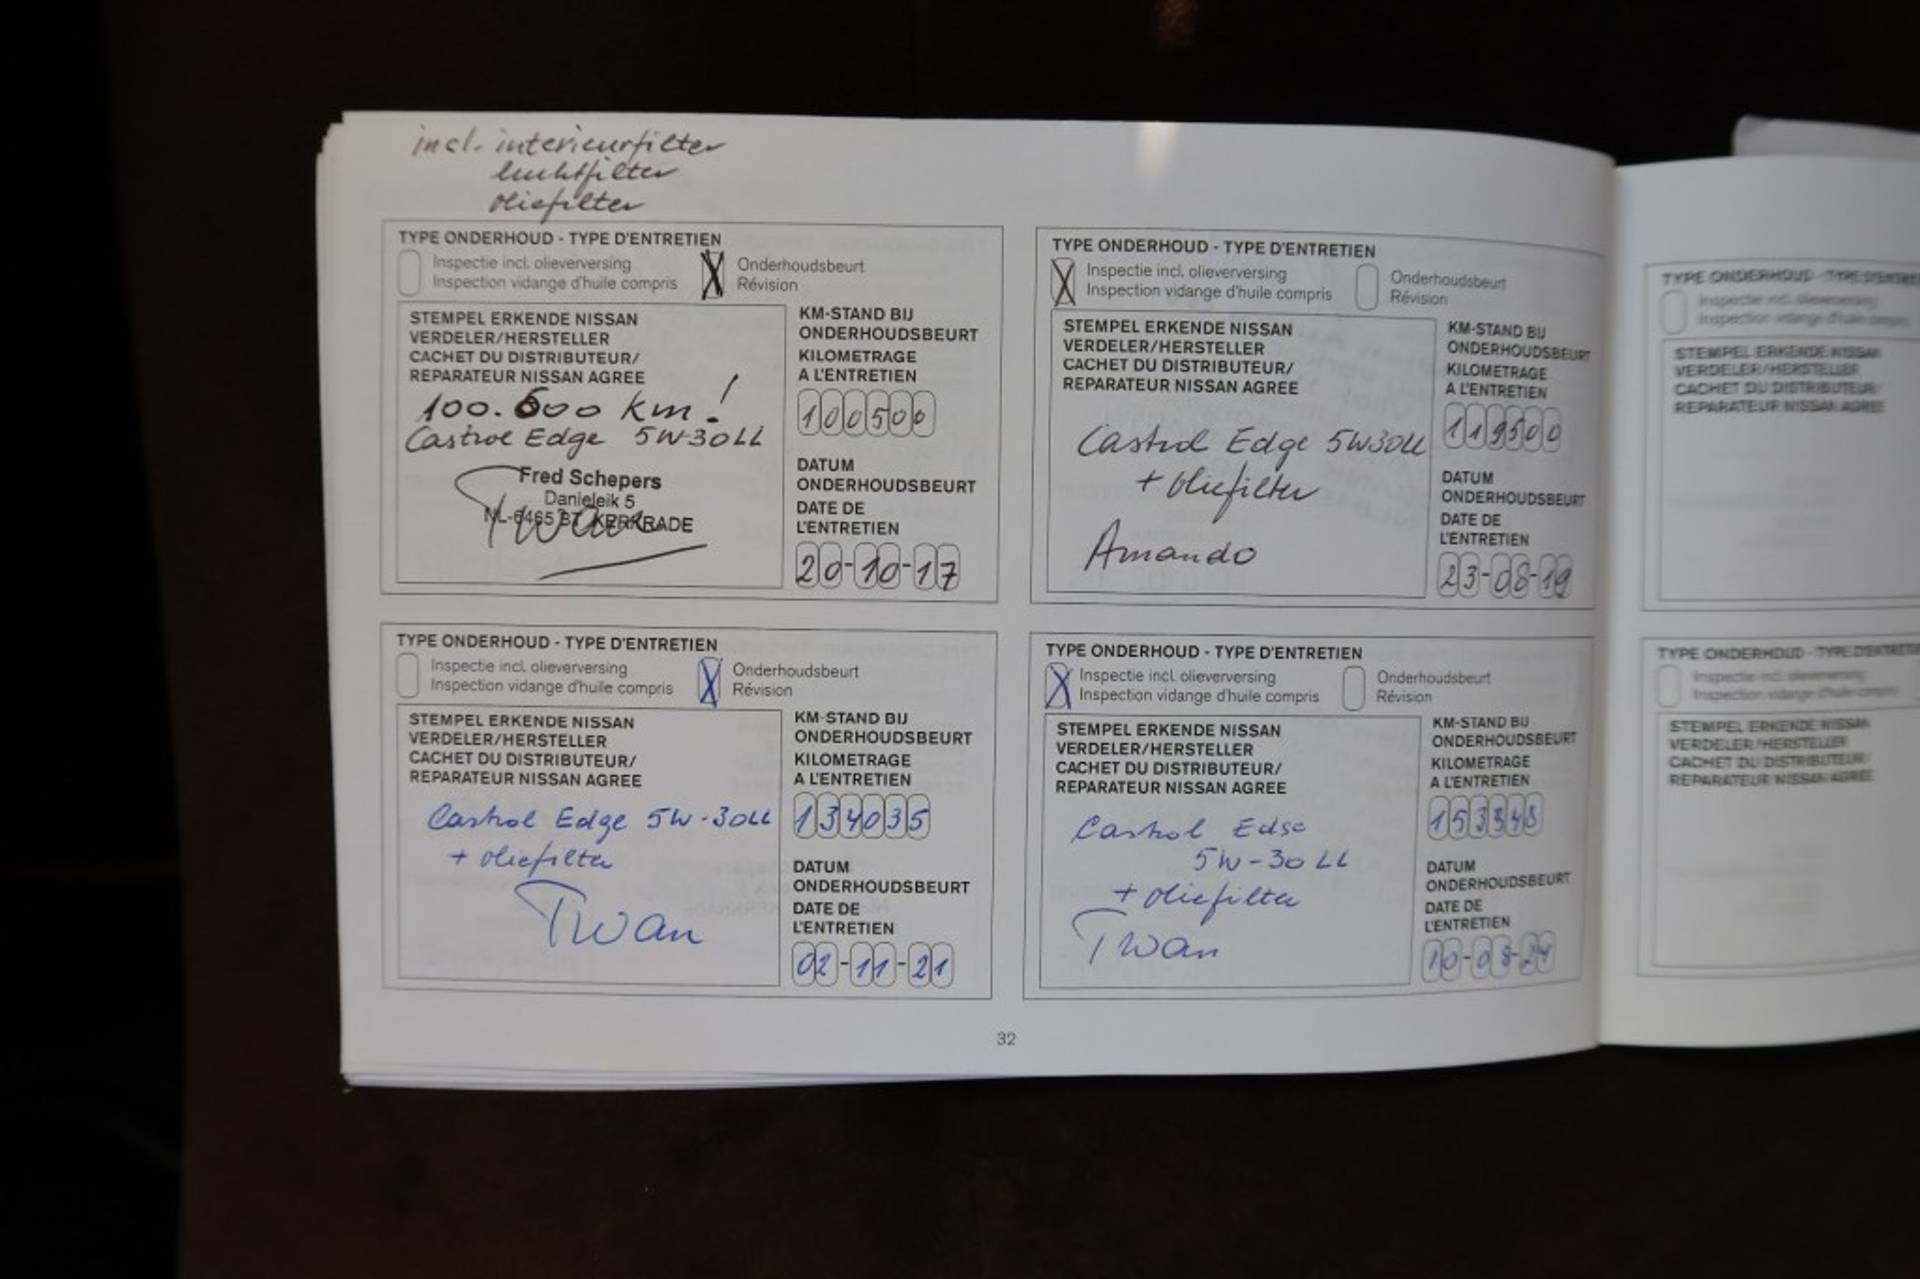 incl. interieurfilter
luchtfilter
oliefilter
TYPE ONDERHOUD - TYPE D'ENTRETIEN
Inspectie incl. olieverversing
Inspection vidange d'huile compris
X
Onderhoudsbeurt
Révision
STEMPEL ERKENDE NISSAN
VERDELER/HERSTELLER
CACHET DU DISTRIBUTEUR/
REPARATEUR NISSAN AGREE
100.500 km!
Castrol Edge 5W-30LL
Fred Schepers
Danieleik 5
NL-6465 BT KERKRADE
Twan
KM-STAND BIJ
ONDERHOUDSBEURT
KILOMETRAGE
A L'ENTRETIEN
100500
DATUM
ONDERHOUDSBEURT
DATE DE
L'ENTRETIEN
20-10-17
TYPE ONDERHOUD - TYPE D'ENTRETIEN
X
Inspectie incl. olieverversing
Inspection vidange d'huile compris
Onderhoudsbeurt
Révision
STEMPEL ERKENDE NISSAN
VERDELER/HERSTELLER
CACHET DU DISTRIBUTEUR/
REPARATEUR NISSAN AGREE
Castrol Edge 5W30LL
+ oliefilter
Amando
KM-STAND BIJ
ONDERHOUDSBEURT
KILOMETRAGE
A L'ENTRETIEN
119500
DATUM
ONDERHOUDSBEURT
DATE DE
L'ENTRETIEN
23-08-19
TYPE ONDERHOUD - TYPE D'ENTRETIEN
Inspectie incl. olieverversing
Inspection vidange d'huile compris
X
Onderhoudsbeurt
Révision
STEMPEL ERKENDE NISSAN
VERDELER/HERSTELLER
CACHET DU DISTRIBUTEUR/
REPARATEUR NISSAN AGREE
Castrol Edge 5W-30LL
+ oliefilter
Twan
KM-STAND BIJ
ONDERHOUDSBEURT
KILOMETRAGE
A L'ENTRETIEN
134035
DATUM
ONDERHOUDSBEURT
DATE DE
L'ENTRETIEN
02-11-21
TYPE ONDERHOUD - TYPE D'ENTRETIEN
X
Inspectie incl. olieverversing
Inspection vidange d'huile compris
Onderhoudsbeurt
Révision
STEMPEL ERKENDE NISSAN
VERDELER/HERSTELLER
CACHET DU DISTRIBUTEUR/
REPARATEUR NISSAN AGREE
Castrol Edge
5W-30 LL
+ oliefilter
Twan
KM-STAND BIJ
ONDERHOUDSBEURT
KILOMETRAGE
A L'ENTRETIEN
153348
DATUM
ONDERHOUDSBEURT
DATE DE
L'ENTRETIEN
10-08-24
32
TYPE ONDERHOUD - TYPE D'ENTRETIEN
Inspectie incl. olieverversing
Inspection vidange d'huile compris
STEMPEL ERKENDE NISSAN
VERDELER/HERSTELLER
CACHET DU DISTRIBUTEUR/
REPARATEUR NISSAN AGREE
TYPE ONDERHOUD - TYPE D'ENTRETIEN
Inspectie incl. olieverversing
Inspection vidange d'huile compris
STEMPEL ERKENDE NISSAN
VERDELER/HERSTELLER
CACHET DU DISTRIBUTEUR/
REPARATEUR NISSAN AGREE